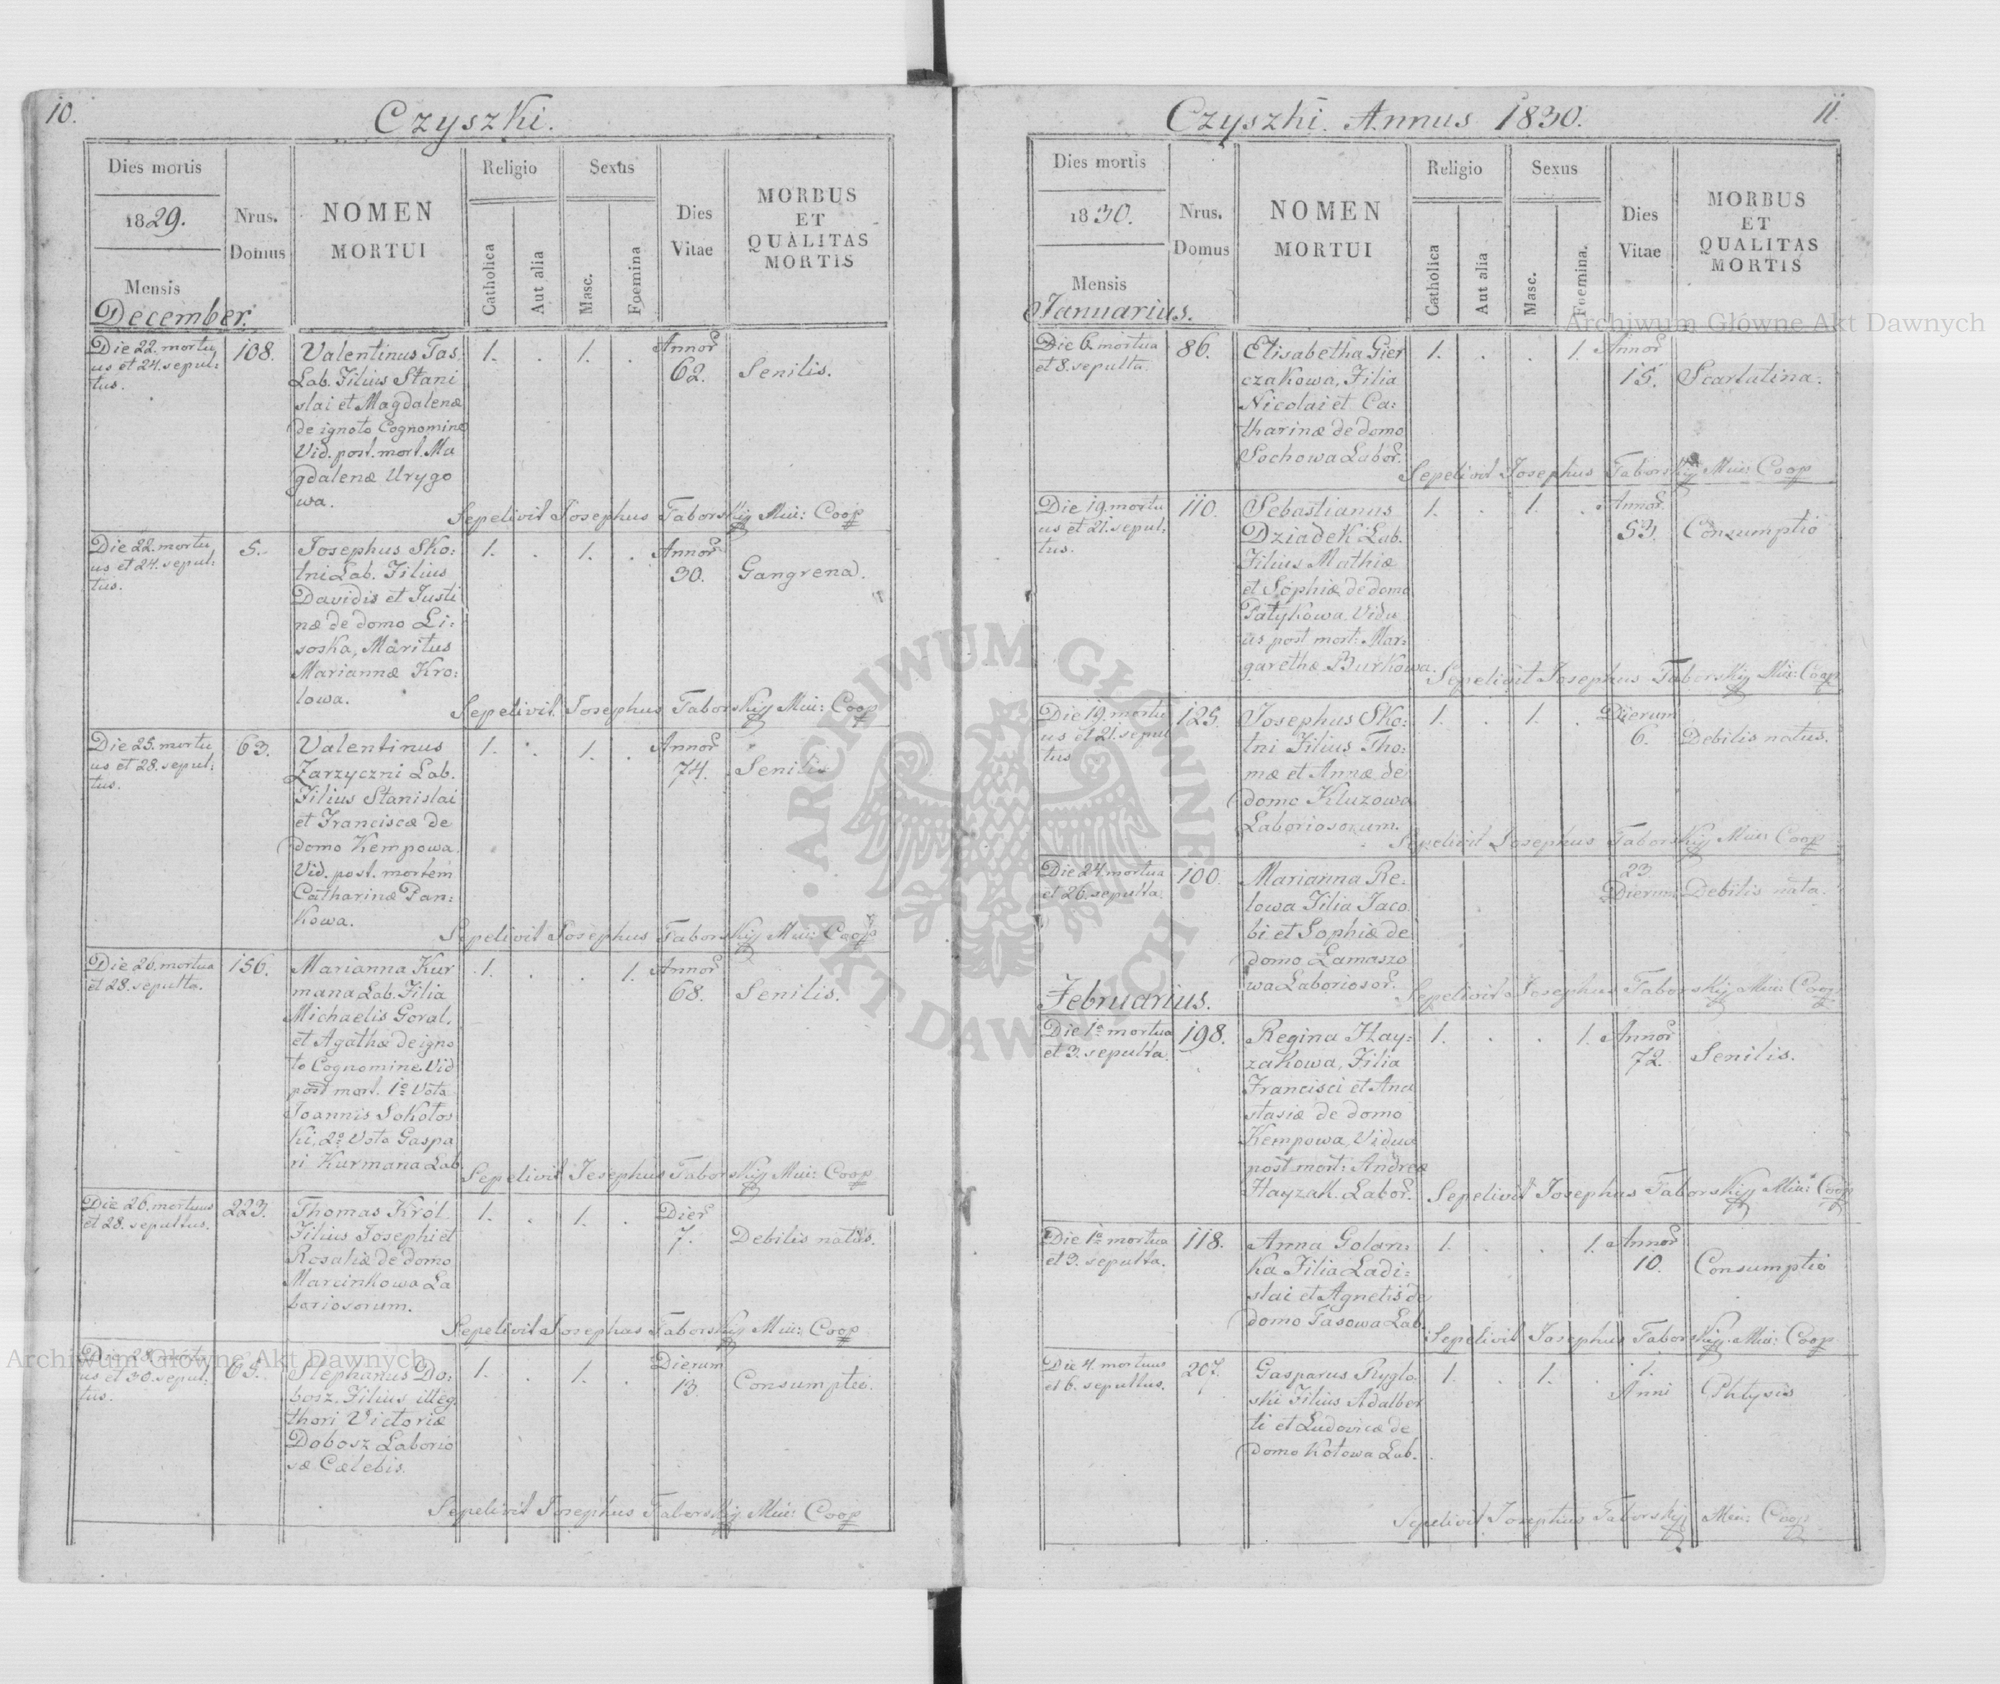 10.
Czyszki.
Dies mortis
1829.
Mensis
December.
Nrus.
Domus
NOMEN
MORTUI
Religio
Catholica
Aut alia
Sexus
Masc.
Foemina
Dies
Vitae
MORBUS
ET
QUALITAS
MORTIS
Die 22. mortu
us et 24. sepul:
tus.
108.
Valentinus Tas.
Lab. Filius Stani
slai et Magdalenæ
de ignoto Cognomine
Vid. post. mort. Ma
gdalenæ Urygo
wa.
1. . 1. .
Annor
62.
Senilis.
Sepelivit Josephus Taborskij Mui: Coop
Die 22. mortu
us et 24. sepul:
tus.
5.
Josephus Sko:
lni Lab. Filius
Davidis et Justi
næ de domo Li:
soska, Maritus
Mariannæ Kro:
lowa.
1. . 1. .
Annor
30.
Gangrena.
Sepelivit Josephus Taborskij Mui: Coop
Die 25. mortu
us et 28. sepul:
tus.
63.
Valentinus
Zarzyczni Lab.
Filius Stanislai
et Franciscæ de
domo Kempowa.
Vid. post. mortem
Catharinæ Pan:
kowa.
1. . 1. .
Annor
74.
Senilis
Sepelivit Josephus Taborskij Mui: Coop
Die 26. mortua
et 28. sepulta.
156.
Marianna Kur
mana Lab. Filia
Michaelis Goral.
et Agathæ de igno
to Cognomine Vid
post mort. 1º Voto
Joannis Sokolos
ki, 2º Voto Gaspa
ri Kurmana Lab
1. . . 1.
Annor
68.
Senilis.
Sepelivit Josephus Taborskij Mui: Coop
Die 26. mortuus
et 28. sepultus.
223.
Thomas Król.
Filius Josephi et
Rosaliæ de domo
Marcinkowa La
boriosorum.
1. . 1. .
Dier
7.
Debilis natus.
Sepelivit Josephus Taborskij Mui: Coop
us et 30. sepul:
tus.
65.
Stephanus Do:
bosz, Filius illeg.
thori Victoriæ
Dobosz Laborio
sæ Cælebis.
1. . 1. .
Dierum
13.
Consumptio.
Sepelivit Josephus Taborskij Mui: Coop
Czyszki. Annus 1830.
11.
Dies mortis
1830.
Mensis
Januarius.
Nrus.
Domus
NOMEN
MORTUI
Religio
Catholica
Aut alia
Sexus
Masc.
Foemina.
Dies
Vitae
MORBUS
ET
QUALITAS
MORTIS
Die 6. mortua
et 8. sepulta.
86.
Elisabetha Gier
czakowa, Filia
Nicolai et Ca:
tharinæ de domo
Sochowa Labor.
1. . . 1.
Annor
15.
Scarlatina.
Sepelivit Josephus Taborskij Mui: Coop
Die 19. mortu
us et 21. sepul:
tus.
110.
Sebastianus
Dziadek Lab.
Filius Mathiæ
et Sophiæ de domo
Patykowa. Vidu
us post mort: Mar:
garethæ Burkowa.
1. . 1. .
Annor
53.
Consumptio
Sepelivit Josephus Taborskij Mui: Coop
Die 19. mortu
us et 21. sepul
tus
125.
Josephus Sko:
lni Filius Tho:
mæ et Annæ de
domo Kluzowa
Laboriosorum.
1. . 1. .
Dierum
6.
Debilis natus.
Sepelivit Josephus Taborskij Mui: Coop
Die 24. mortua
et 26. sepulta.
100.
Marianna Re:
lowa Filia Jaco
bi et Sophiæ de
domo Lamaszo
wa Laboriosor.
23
Dierum
Debilis nata.
Sepelivit Josephus Taborskij Mui: Coop
Februarius.
Die 1ª mortua
et 3. sepulta.
198.
Regina Hay:
zakowa, Filia
Francisci et Ana
stasiæ de domo
Kempowa, Vidua
post mort: Andreæ
Hayzak. Labor.
1. . . 1.
Annor
72.
Senilis.
Sepelivit Josephus Taborskij Mui: Coop
Die 1ª mortua
et 3. sepulta.
118.
Anna Golan:
ka Filia Ladi:
slai et Agnetis de
domo Tasowa Lab.
1. . . 1.
Annor
10.
Consumptio
Sepelivit Josephus Taborskij Mui: Coop
Die 4. mortuus
et 6. sepultus.
207.
Gasparus Ryglo.
ski Filius Adalber
ti et Ludovicæ de
domo Kotowa Lab.
1. . 1. .
1.
Anni
Phtysis
Sepelivit Josephus Taborskij Mui: Coop
Archiwum Główne Akt Dawnych
Archiwum Główne Akt Dawnych
ARCHIWUM GŁÓWNE AKT DAWNYCH